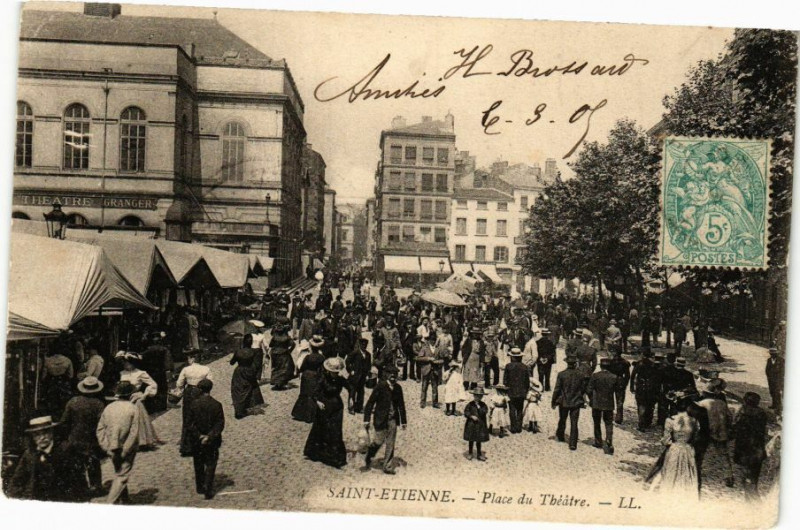 Amitiés H Brossard
6-9-05
THÉATRE GRANGER
POSTES
5c
SAINT-ETIENNE. — Place du Théâtre. — LL.